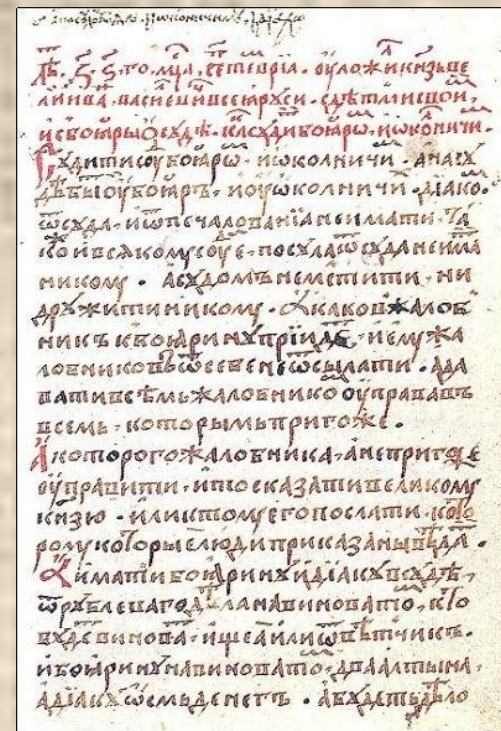 лѣ҃. ҂з҃. ѕ҃. го. мц҃а. сетеврїа. оуложи кн҃зь ве
ликїи ива. васиевич всеа руси. с дѣтми своими,
и с боꙗры ѡ судѣ. ка сꙋди боꙗрѡ. и ѡколничи.
Сꙋдити сꙋ боꙗрѡ. и ѡколничи. а на сꙋ
дѣ бы оу боꙗръ. и оу ѡколничи дїако.
ѿ сꙋда. и ѿ печалованїа не имати. та
кѡ и всѧкомꙋ сꙋе. посꙋла ѿ сꙋда не има
никомꙋ. а сꙋдомъ не мстити. ни
дрꙋжити никомꙋ. а каков жалоб
никъ к боꙗринꙋ прїидѣ. и емꙋ жа
лобниковъ ѿ себе не ѿсылати. а да
вати всѣмь жалобнико оуправа въ
всемь. которымь пригоже.
А которого жалобника. а не пригоже
оуправити. и то сказати великомꙋ
кн҃зю. или к томꙋ его послати. кото
ромꙋ которые люди приказаны вѣда.
А имати боꙗринꙋ и дїакꙋ в сꙋдѣ,
ѿ рꙋблеваго дѣла на виновато. кто
бꙋде винова. ищеа или ѿвѣтчикъ.
и боꙗринꙋ на виновато. два алтына.
а дїакꙋ ѡсмь денегъ. а бꙋдеть дѣло